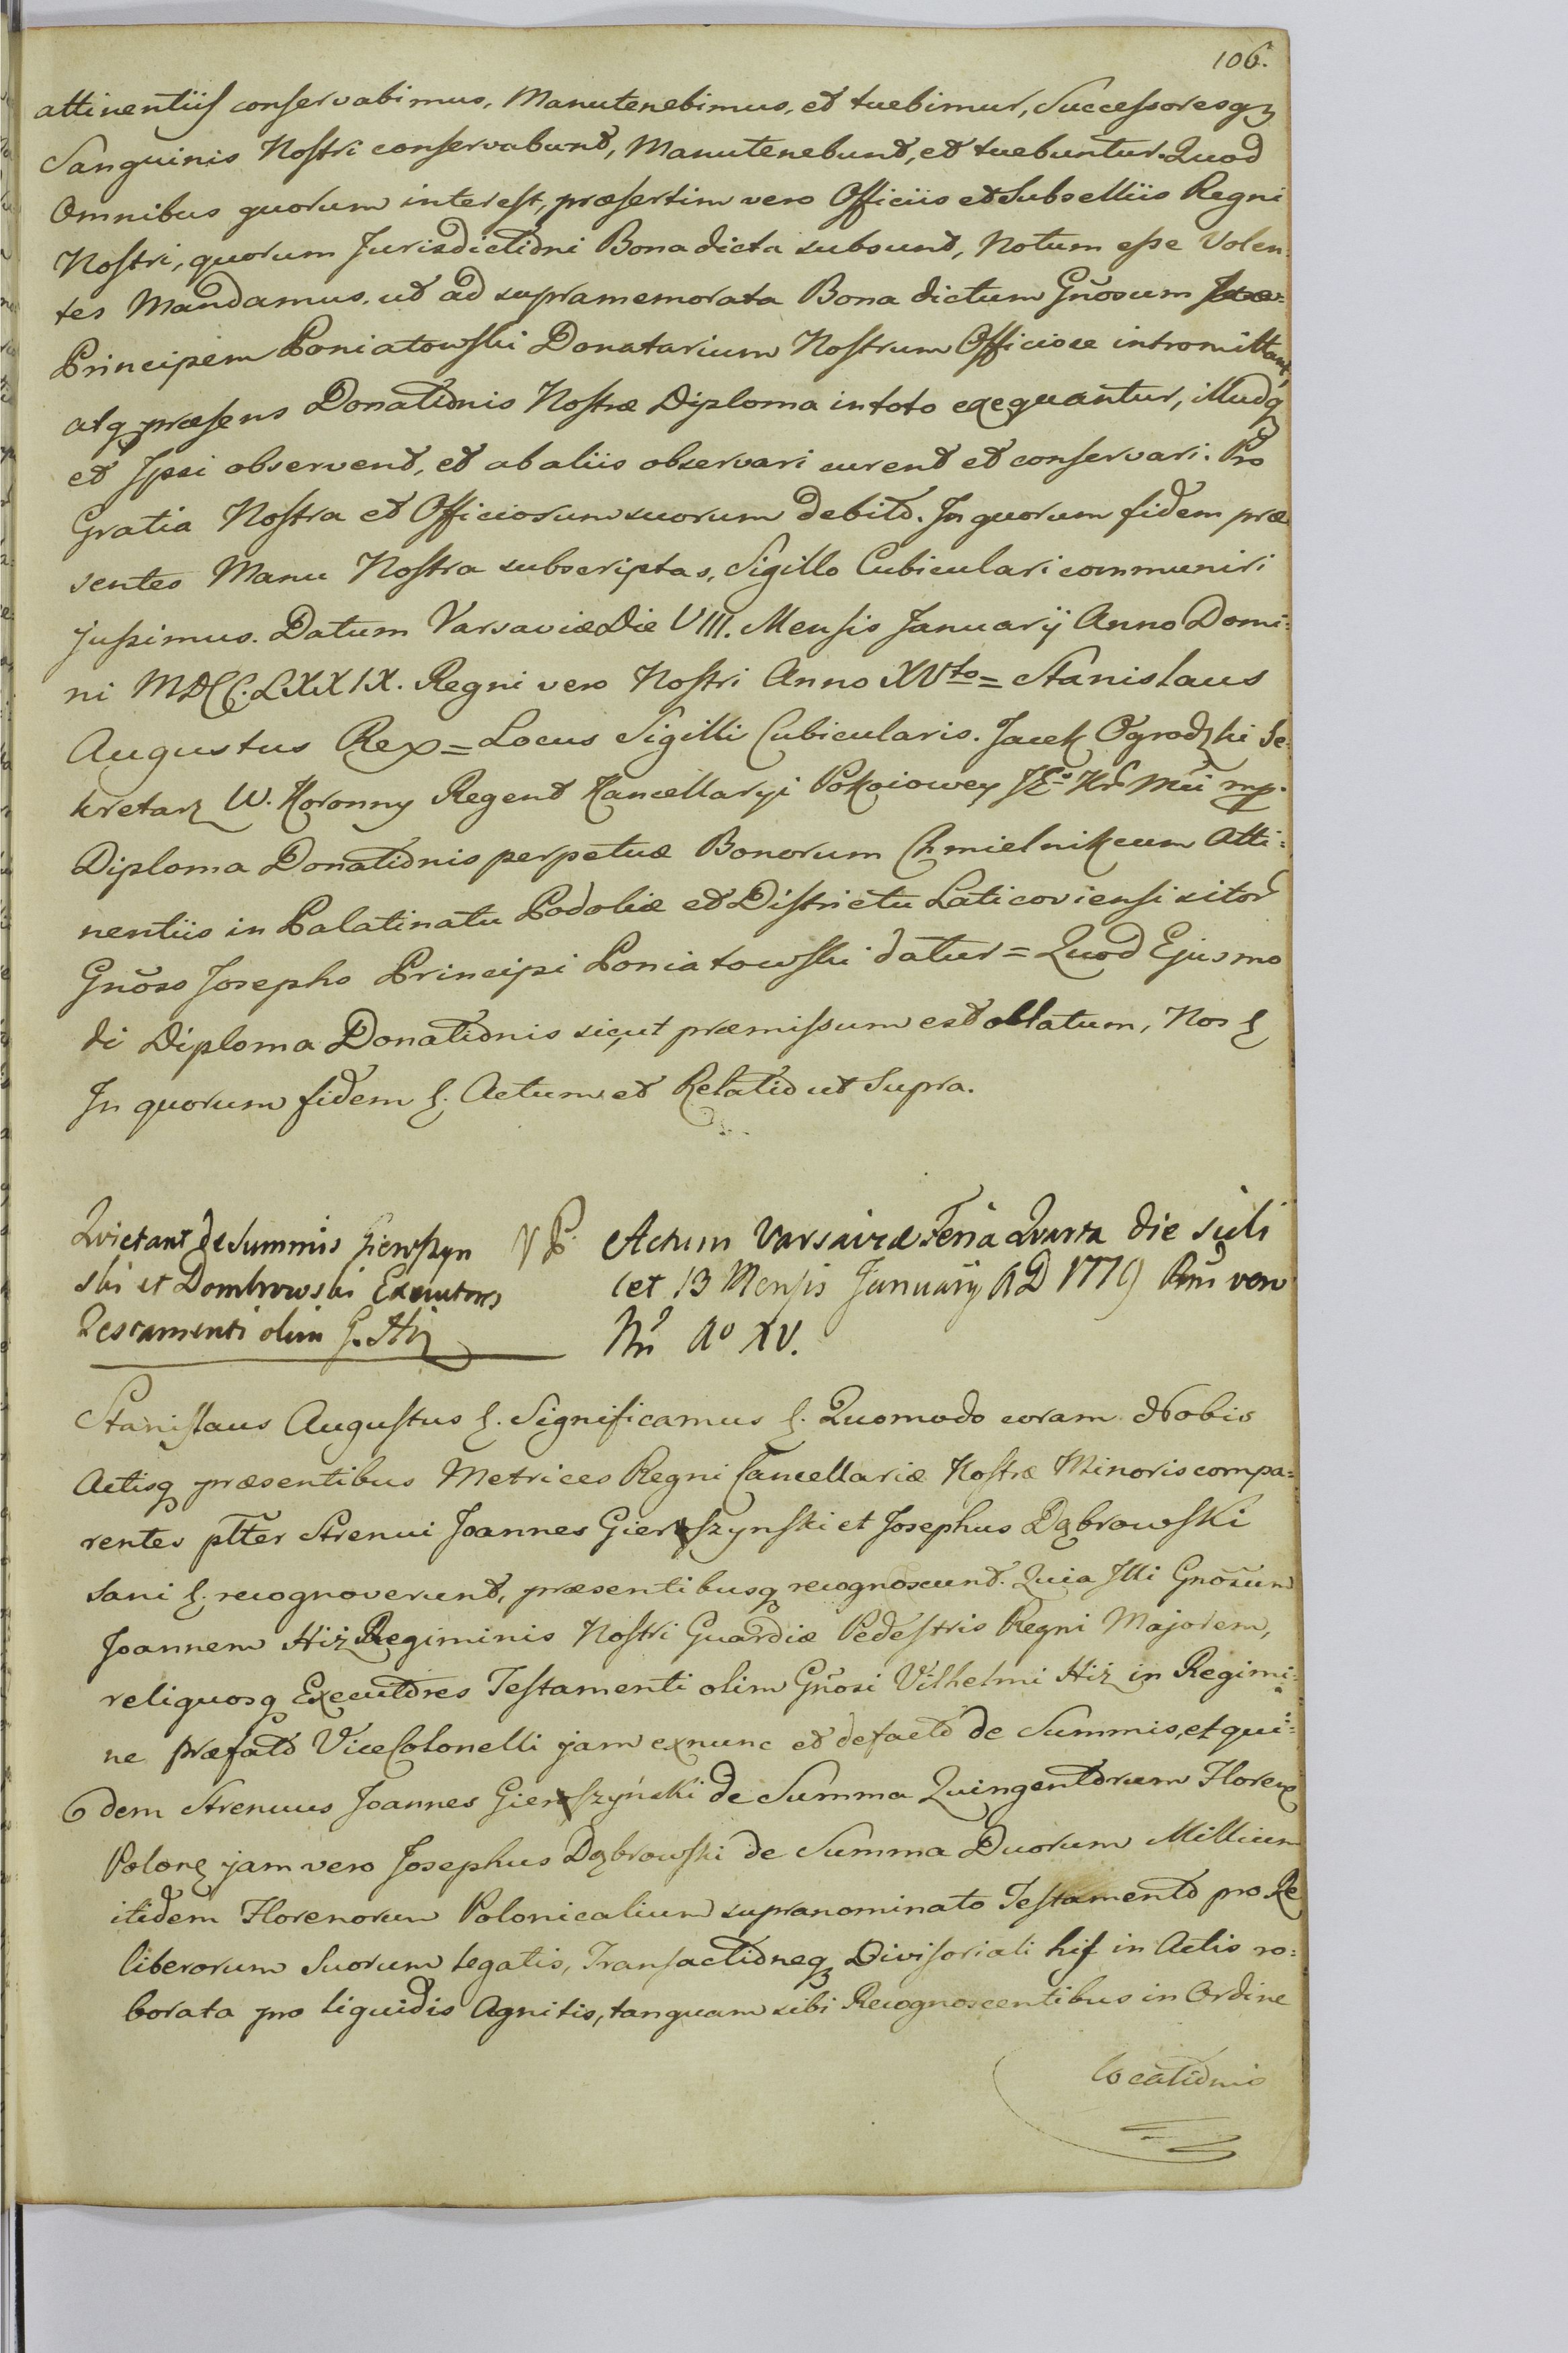 106.
attinentiis conservabimus, Manutenebimus, et tuebimur, Successoresqz
Sanguinis Nostri conservabunt, Manutenebunt, et tuebuntur. Quod
Omnibus quorum interest, præsertim vero Officiis et Subselliis Regni
Nostri, quorum Jurisdictioni Bona dicta subsunt, Notum esse Volen:
tes Mandamus, ut ad supramemorata Bona dictum Gnõsum
Principem Poniatowski Donatarium Nostrum Officiose intromittant,
atq præsens Donationis Nostræ Diploma in toto exequantur, illudq
et Ipsi observent, et ab aliis observari curent et conservari. Pro
Gratia Nostra et Officiorum suorum debito. In quorum fidem præ
sentes Manu Nostra subscriptas, Sigillo Cubiculari communiri
jussimus. Datum Varsaviæ Die VIII. Mensis Januarij Anno Domi:
ni MDCC.LXXIX. Regni vero Nostri Anno XVto = Stanislaus
Augustus Rex = Locus Sigilli Cubicularis. Jacek Ogrodzki Se:
kretarz W. Koronny Regent Kancellaryi Pokoiowey JKo Kr Mci mp.
Diploma Donationis perpetuæ Bonorum Chmielnik cum Atti:
nentiis in Palatinatu Podoliæ et Districtu Laticoviensi sitor
Gnõso Josepho Principi Poniatowski datur = Quod Ejusmo
di Diploma Donationis sicut præmissum est oblatum, Nos &
In quorum fidem &. Actum et Relatio ut Supra.
Quietant de Summis Gierszyn
ski et Dombrowski Executores
Testamenti olim G. Hiz
Actum Varsaviæ Feria Quarta die scili
cet 13 Mensis January AD 1779 Rni vero
Nri Ao XV.
Stanislaus Augustus &. Significamus &. Quomodo coram Nobis
Actisq præsentibus Metrices Regni Cancellariæ Nostræ Minoris compa:
rentes pltter Strenui Joannes Gierszynski et Josephus Dąbrowski
Sani &. recognoverunt, præsentibusq recognoscunt. Quia Illi Gnõsum
Joannem Hiz Regiminis Nostri Guardiæ Pedestris Regni Majorem,
reliquosq Executores Testamenti olim Gnõsi Vilhelmi Hiz in Regimi:
ne præfato ViceColonelli jam exnunc et defacto de Summis, et qui:
dem Strenuus Joannes Gierszyński de Summa Quingentorum Floren
Polon jam vero Josephus Dąbrowski de Summa Duorum Millium
itidem Florenorum Polonicalium supranominato Testamento pro Re
liberorum Suorum legatis, Transactioneq Divisoriali his in Actis ro:
borata pro liquidis Agnitis, tanquam sibi Recognoscentibus in Ordine
locationis